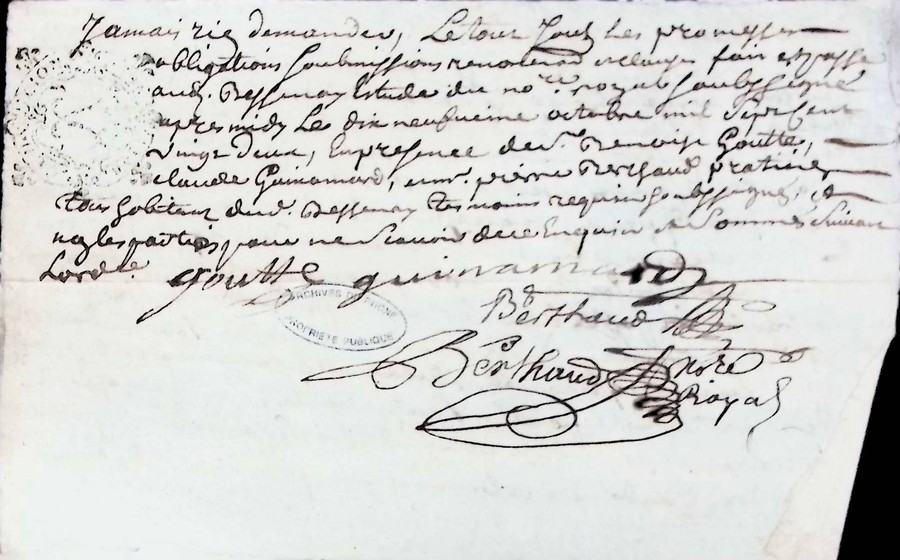 Jamais rie demander, Le tout Soubz les promesses
obligations Soubmissions renontions et clauzes fait et passé
aud. Bessenay Estude du nore. royal Soubsigné
apres midy Le dix neufvieme octobre mil Sept Cent
vingt deux, En presence de sr. Benoist Goutte,
claude Guinamard, et mr. pierre Berthaud praticien
tous habitant dud. Bessenay tesmoins requis Soubssignez, et
non les parties pour ne Scavoir de ce Enquis et Sommés Suivant
Lordce.
Goutte guinamard
Berthaud
ARCHIVES DU RHONE
PROPRIÉTÉ PUBLIQUE
Berthaud Notre
Royal